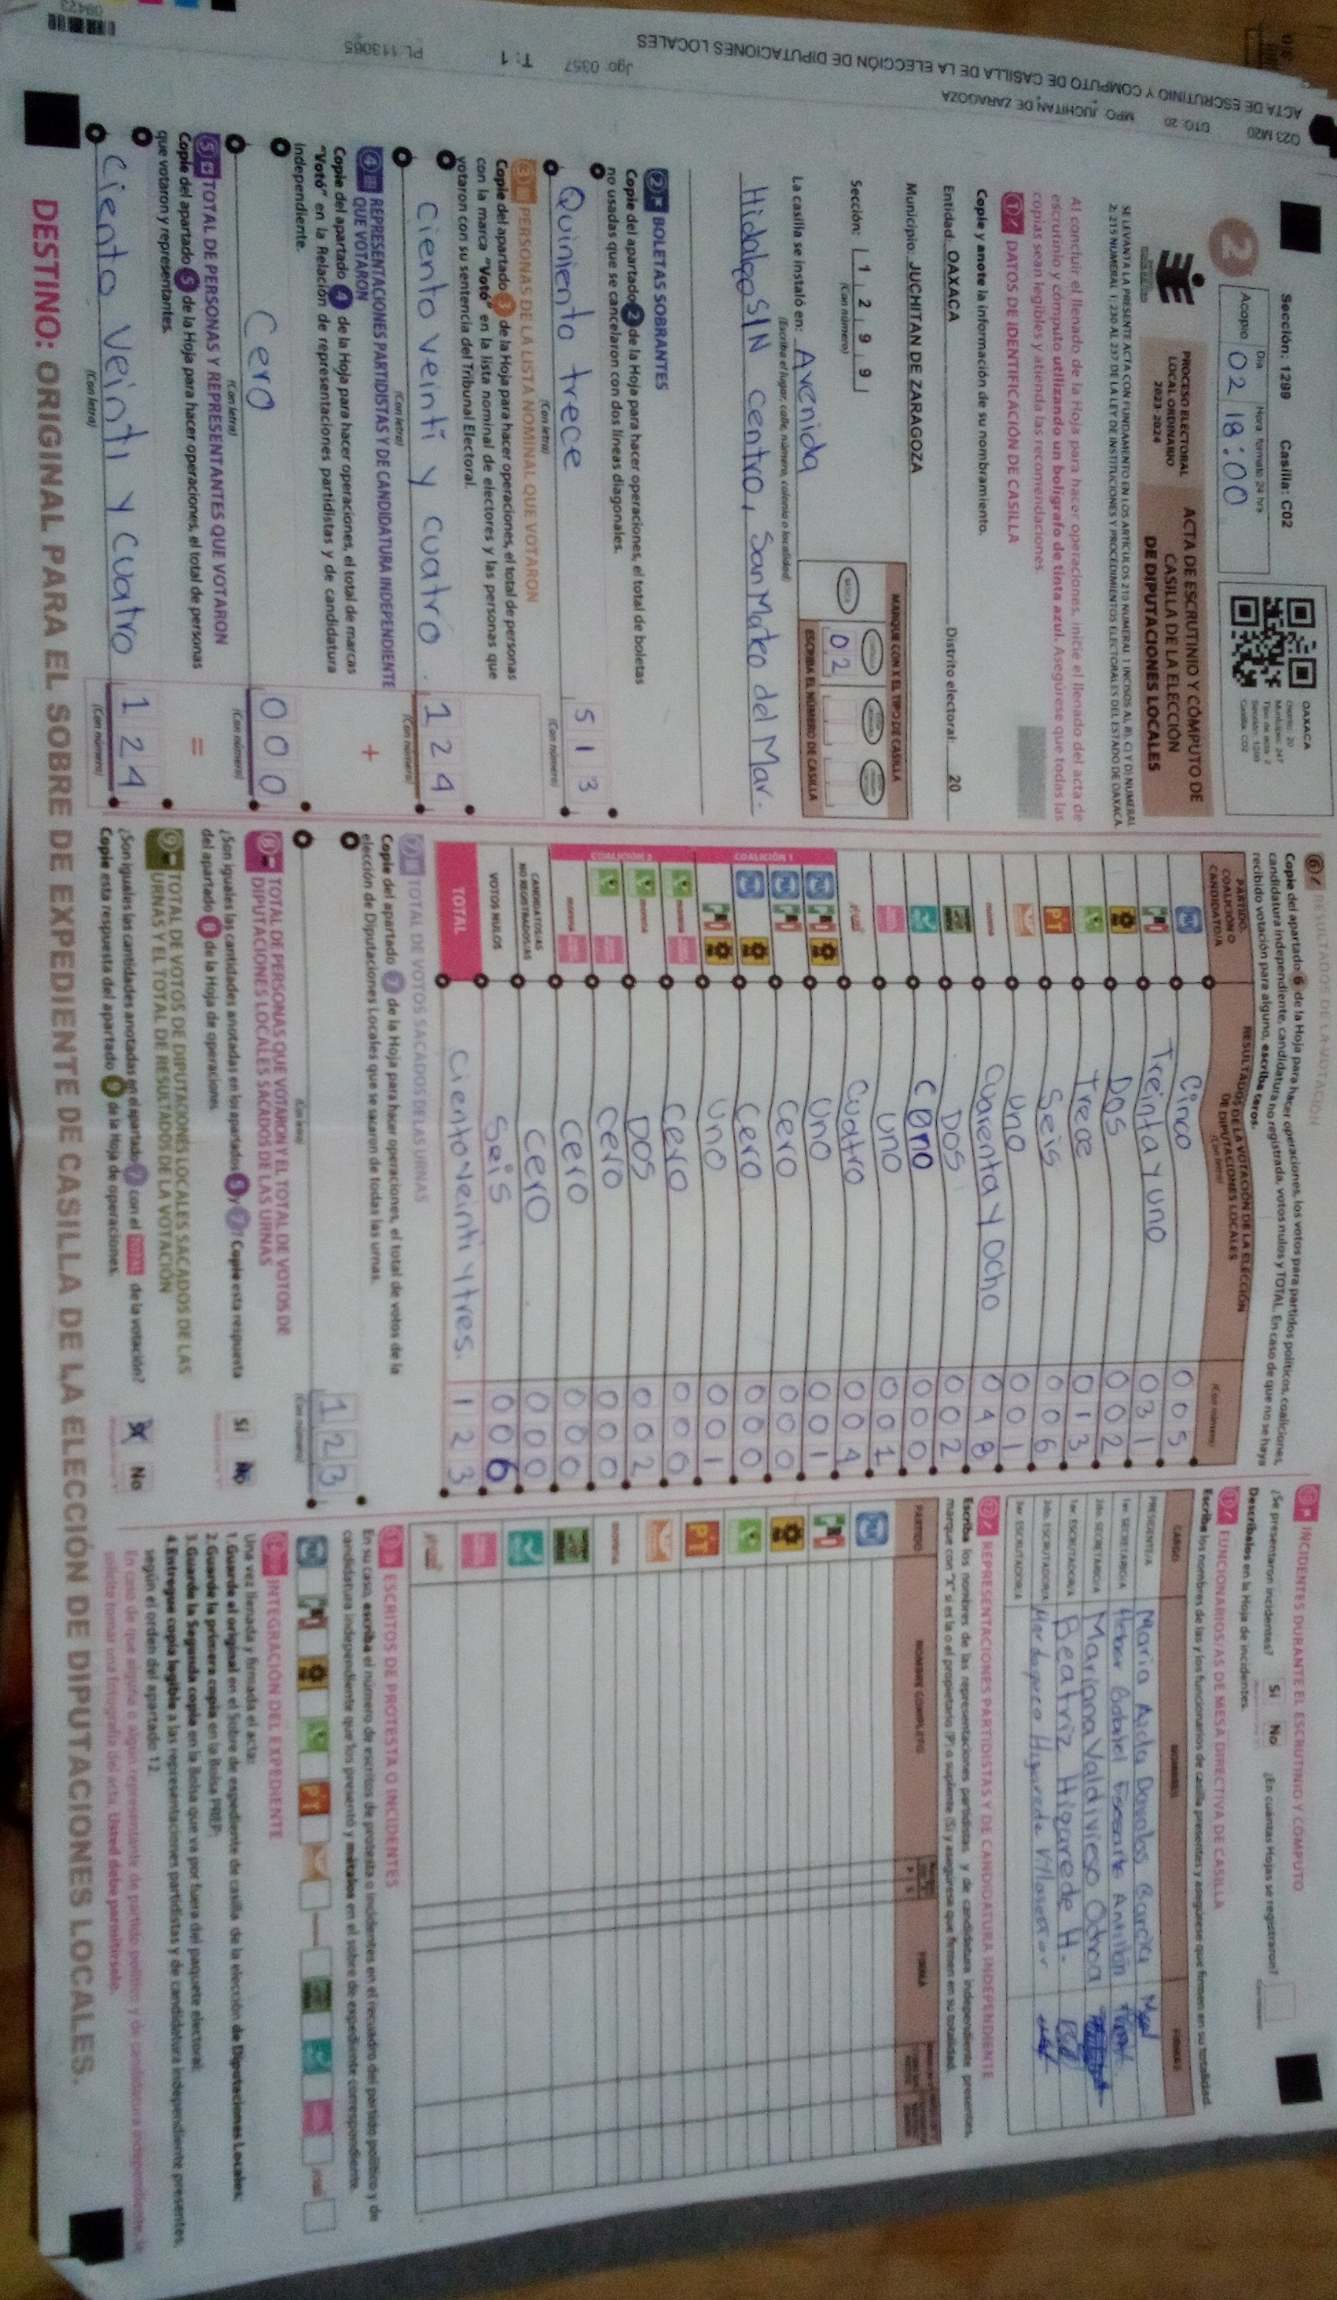 ACTA DE ESCRUTINIO Y CÓMPUTO DE CASILLA DE LA ELECCIÓN DE DIPUTACIONES LOCALES
023 M20 DTO: 20 MPO: JUCHITÁN DE ZARAGOZA
Jgo: 0357 T: 1 PL: 113065
09423
Sección: 1299 Casilla: C02
2
Acopio
Día
Hora formato 24 hrs
02 18:00
OAXACA
PROCESO ELECTORAL
LOCAL ORDINARIO
2023-2024
ACTA DE ESCRUTINIO Y CÓMPUTO DE
CASILLA DE LA ELECCIÓN
DE DIPUTACIONES LOCALES
SE LEVANTA LA PRESENTE ACTA CON FUNDAMENTO EN LOS ARTÍCULOS 210 NUMERAL 1 INCISOS A), B), C) Y D) NUMERAL
2; 215 NUMERAL 1; 230 AL 237 DE LA LEY DE INSTITUCIONES Y PROCEDIMIENTOS ELECTORALES DEL ESTADO DE OAXACA.
Al concluir el llenado de la Hoja para hacer operaciones, inicie el llenado del acta de
escrutinio y cómputo utilizando un bolígrafo de tinta azul. Asegúrese que todas las
copias sean legibles y atienda las recomendaciones.
1 DATOS DE IDENTIFICACIÓN DE CASILLA
Copie y anote la información de su nombramiento.
Entidad: OAXACA Distrito electoral: 20
Municipio: JUCHITAN DE ZARAGOZA
Sección: 1 2 9 9
(Con número)
MARQUE CON X EL TIPO DE CASILLA
02
ESCRIBA EL NÚMERO DE CASILLA
La casilla se instaló en: Avenida
(Escriba el lugar, calle, número, colonia o localidad)
Hidalgo S/N Centro, San Mateo del Mar.
2 BOLETAS SOBRANTES
Copie del apartado 2 de la Hoja para hacer operaciones, el total de boletas
no usadas que se cancelaron con dos líneas diagonales.
Quiniento trece 513
(Con letra) (Con número)
3 PERSONAS DE LA LISTA NOMINAL QUE VOTARON
Copie del apartado 3 de la Hoja para hacer operaciones, el total de personas
con la marca "Votó" en la lista nominal de electores y las personas que
votaron con su sentencia del Tribunal Electoral.
Ciento veinti y cuatro. 124
(Con letra) (Con número)
4 REPRESENTACIONES PARTIDISTAS Y DE CANDIDATURA INDEPENDIENTE
QUE VOTARON
+
Copie del apartado 4 de la Hoja para hacer operaciones, el total de marcas
"Votó" en la Relación de representaciones partidistas y de candidatura
independiente.
Cero 000
(Con letra) (Con número)
5 TOTAL DE PERSONAS Y REPRESENTANTES QUE VOTARON
=
Copie del apartado 5 de la Hoja para hacer operaciones, el total de personas
que votaron y representantes.
Ciento veinti y cuatro 124
(Con letra) (Con número)
6 RESULTADOS DE LA VOTACIÓN
Copie del apartado 6 de la Hoja para hacer operaciones, los votos para partidos políticos, coaliciones,
candidatura independiente, candidatura no registrada, votos nulos y TOTAL. En caso de que no se haya
recibido votación para alguno, escriba ceros.
PARTIDO,
COALICIÓN O
CANDIDATO/A
RESULTADOS DE LA VOTACIÓN DE LA ELECCIÓN
DE DIPUTACIONES LOCALES
(Con letra)
(Con número)
Cinco 005
Treinta y uno 031
Dos 002
Trece 013
PT Seis 006
Uno 001
morena Cuarenta y Ocho 048
Dos 002
000
Uno 001
Cuatro 004
COALICIÓN 1
Uno 001
Cero 000
Cero 000
Uno 001
COALICIÓN 2
Cero 000
Dos 002
Cero 000
Cero 000
CANDIDATOS/AS
NO REGISTRADOS/AS
Cero 000
VOTOS NULOS Seis 006
TOTAL Ciento veinti y tres. 123
7 TOTAL DE VOTOS SACADOS DE LAS URNAS
Copie del apartado 7 de la Hoja para hacer operaciones, el total de votos de la
elección de Diputaciones Locales que se sacaron de todas las urnas.
123
(Con letra) (Con número)
8 TOTAL DE PERSONAS QUE VOTARON Y EL TOTAL DE VOTOS DE
DIPUTACIONES LOCALES SACADOS DE LAS URNAS
¿Son iguales las cantidades anotadas en los apartados 5 y 7? Copie esta respuesta
del apartado 8 de la Hoja de operaciones.
Sí No
9 TOTAL DE VOTOS DE DIPUTACIONES LOCALES SACADOS DE LAS
URNAS Y EL TOTAL DE RESULTADOS DE LA VOTACIÓN
¿Son iguales las cantidades anotadas en el apartado 7 con el TOTAL de la votación?
Copie esta respuesta del apartado 9 de la Hoja de operaciones.
Sí No
INCIDENTES DURANTE EL ESCRUTINIO Y CÓMPUTO
¿Se presentaron incidentes? Sí No ¿En cuántas Hojas se registraron?
Descríbalos en la Hoja de incidentes.
FUNCIONARIOS/AS DE MESA DIRECTIVA DE CASILLA
Escriba los nombres de las y los funcionarios de casilla presentes y asegúrese que firmen en su totalidad.
CARGO NOMBRES FIRMAS
PRESIDENTE/A Maria Aida
1er. SECRETARIO/A
2do. SECRETARIO/A Mariana Valdivieso Ochoa
1er. ESCRUTADOR/A Beatriz Higareda H.
2do. ESCRUTADOR/A
3er. ESCRUTADOR/A
12 REPRESENTACIONES PARTIDISTAS Y DE CANDIDATURA INDEPENDIENTE
Escriba los nombres de las representaciones partidistas y de candidatura independiente presentes,
marque con "X" si es la o el propietario (P) o suplente (S) y asegúrese que firmen en su totalidad.
PARTIDO NOMBRE COMPLETO FIRMA
ESCRITOS DE PROTESTA O INCIDENTES
En su caso, escriba el número de escritos de protesta o incidentes en el recuadro del partido político y de
candidatura independiente que los presentó y métalos en el sobre de expediente correspondiente.
INTEGRACIÓN DEL EXPEDIENTE
Una vez llenada y firmada el acta:
1. Guarde el original en el Sobre de expediente de casilla de la elección de Diputaciones Locales;
2. Guarde la primera copia en la Bolsa PREP;
3. Guarde la Segunda copia en la Bolsa que va por fuera del paquete electoral;
4. Entregue copia legible a las representaciones partidistas y de candidatura independiente presentes,
según el orden del apartado 12.
En caso de que alguna o algún representante de partido político y de candidatura independiente, le
solicite tomar una fotografía del acta, Usted debe permitírselo.
DESTINO: ORIGINAL PARA EL SOBRE DE EXPEDIENTE DE CASILLA DE LA ELECCIÓN DE DIPUTACIONES LOCALES.